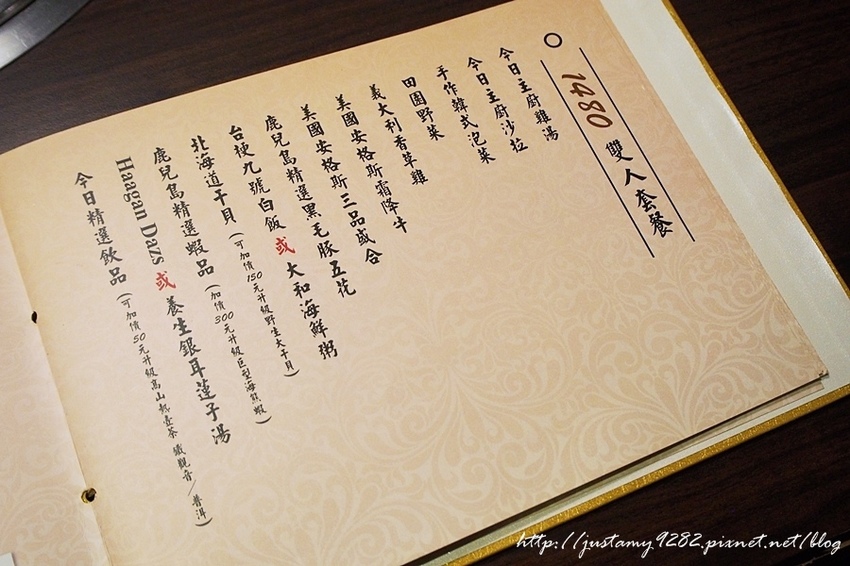 1480 雙人套餐
今日主廚雞湯
今日主廚沙拉
手作韓式泡菜
田園野菜
義大利香草雞
美國安格斯霜降牛
美國安格斯三品盛合
鹿兒島精選黑毛豚五花
台梗九號白飯 或 大和海鮮粥
北海道干貝 (可加價150元升級野生大干貝)
鹿兒島精選蝦品 (加價300元升級巨型海熊蝦)
Haagan Dazs 或 養生銀耳蓮子湯
今日精選飲品 (可加價50元升級高山熱壺茶 鐵觀音/普洱)
http://justamy9282.pixnet.net/blog